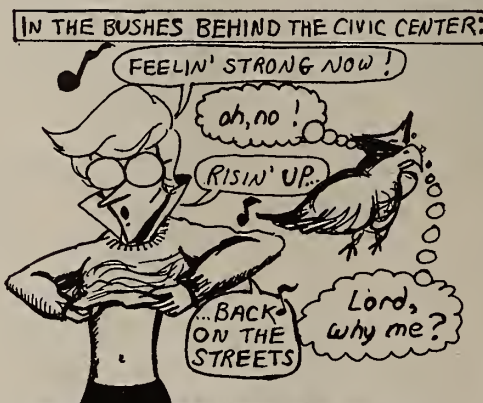 IN THE BUSHES BEHIND THE CIVIC CENTER:
FEELIN' STRONG NOW!
oh, no!
RISIN' UP...
...BACK
ON THE
STREETS
Lord,
why me?